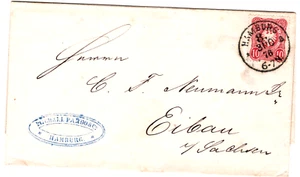 HAMBURG
10 10
Herrn
C. F. Neumann Jr
Eibau
i/Sachsen
HAMBURG